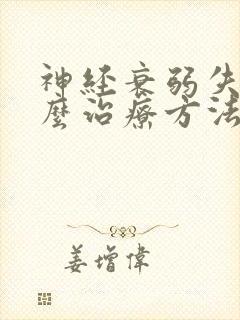 神経衰弱失
麼治療方法
姜增偉